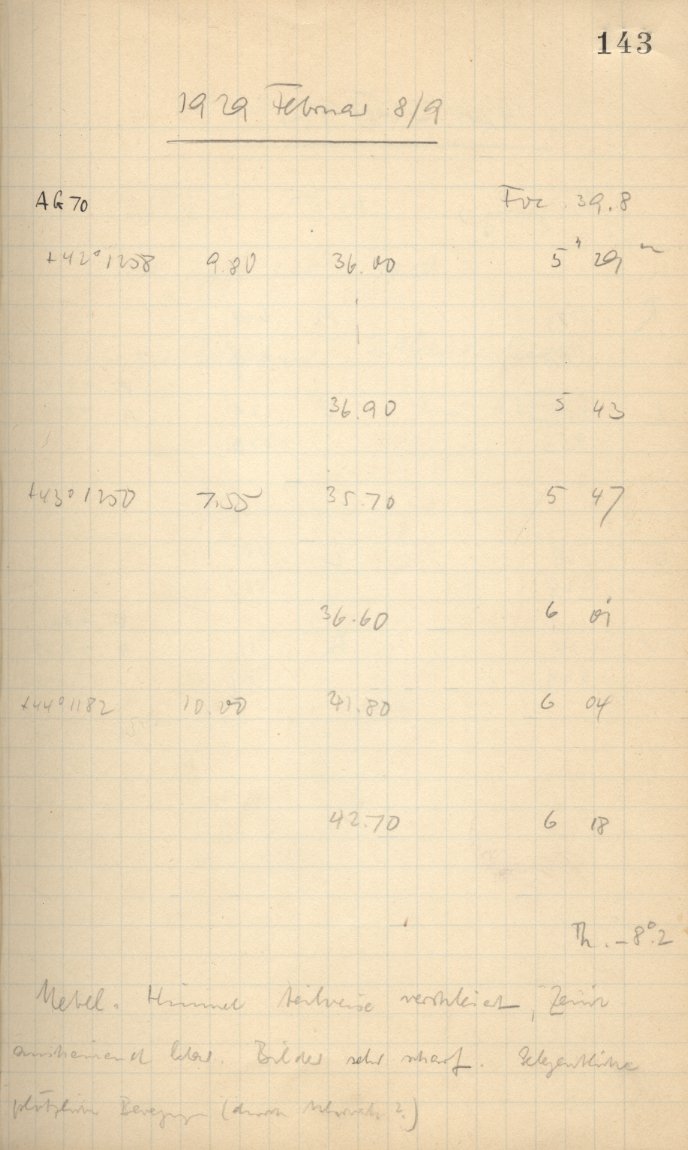 143
1929 Februar 8/9
AG 70 Foc 39.8
+42° 1258 9.80 36.00 5ʰ 29ᵐ
36.90 5 43
+43° 1250 7.55 35.70 5 47
36.60 6 01
+44° 1182 10.00 41.80 6 04
42.70 6 18
Th. -8°.2
Nebel. Himmel teilweise verschleiert, Zenit
anscheinend klar. Bilder sehr scharf. Gelegentliche
plötzliche Bewegung (durch